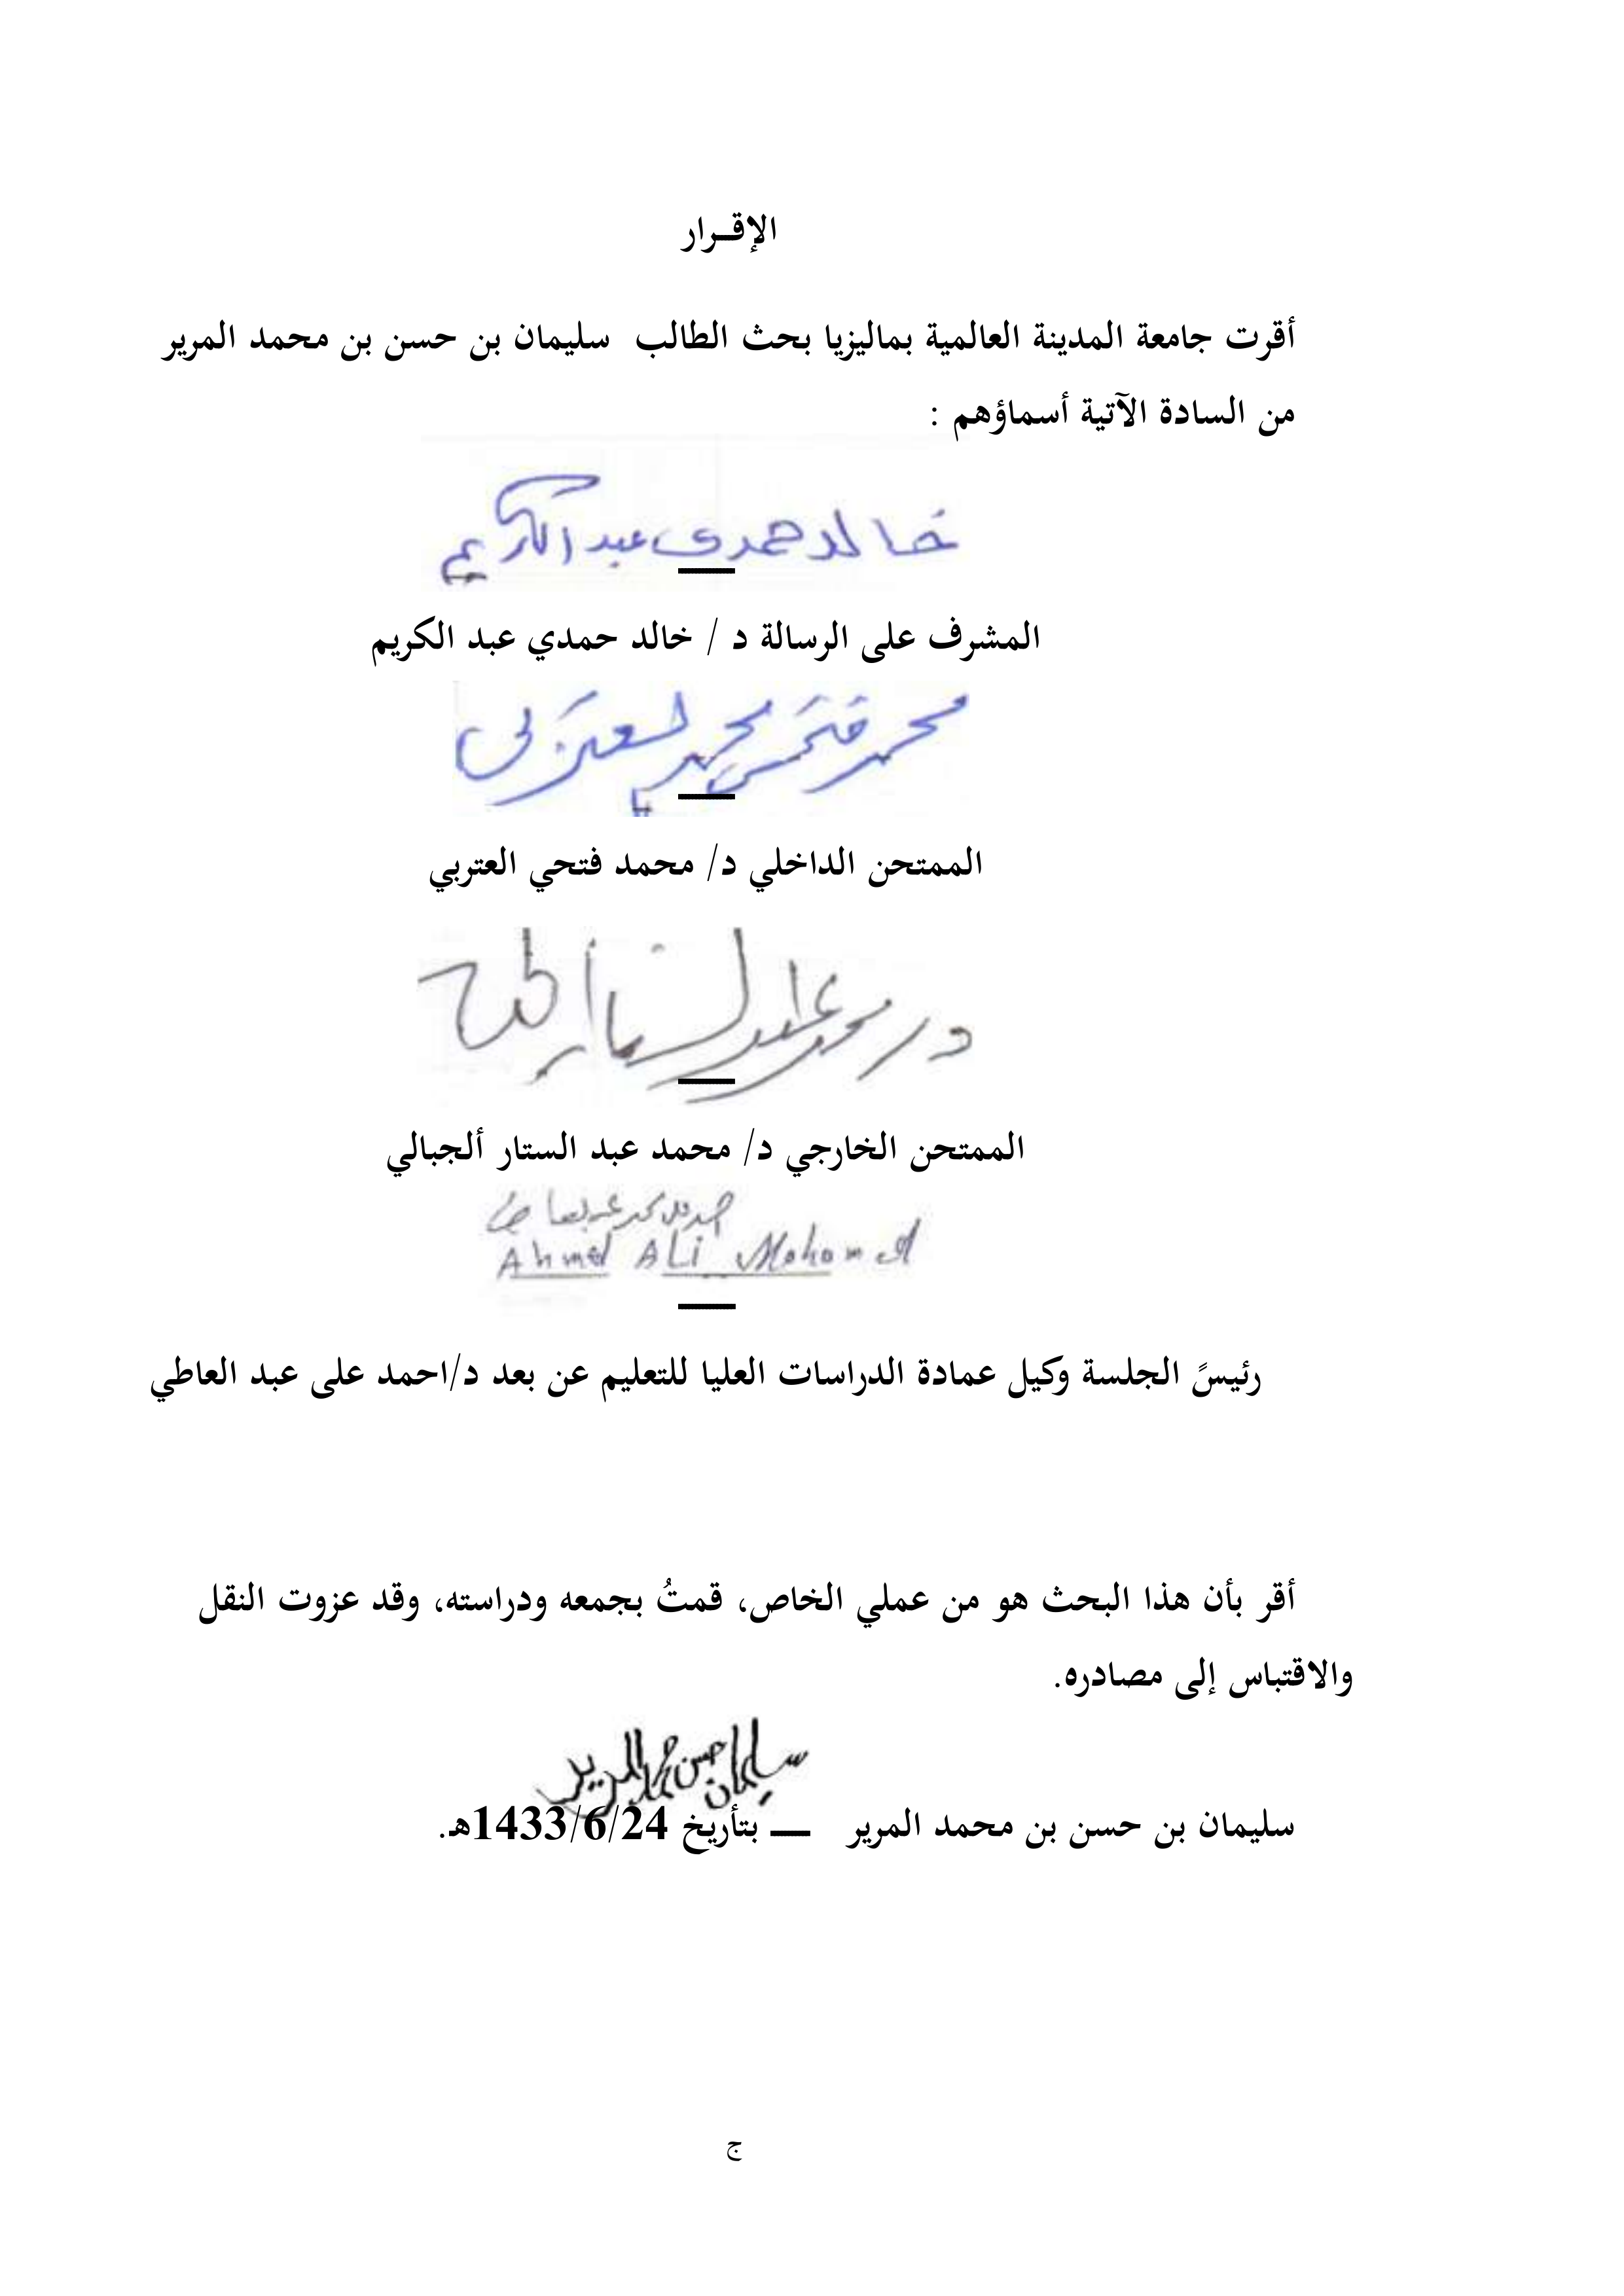 الإقـرار
أقرت جامعة المدينة العالمية بماليزيا بحث الطالب سليمان بن حسن بن محمد المرير
من السادة الآتية أسماؤهم :
خالد حمدى عبد الكريم
المشرف على الرسالة د / خالد حمدي عبد الكريم
محمد فتحى محمد العتربى
الممتحن الداخلي د/ محمد فتحي العتربي
د / محمد عبد الستار
الممتحن الخارجي د/ محمد عبد الستار ألجبالي
Ahmed ALi Mohomed
رئيسً الجلسة وكيل عمادة الدراسات العليا للتعليم عن بعد د/احمد على عبد العاطي
أقر بأن هذا البحث هو من عملي الخاص، قمتُ بجمعه ودراسته، وقد عزوت النقل
والاقتباس إلى مصادره.
سليمان حسن محمد المرير
سليمان بن حسن بن محمد المرير ـــ بتأريخ 1433/6/24هـ.
ج